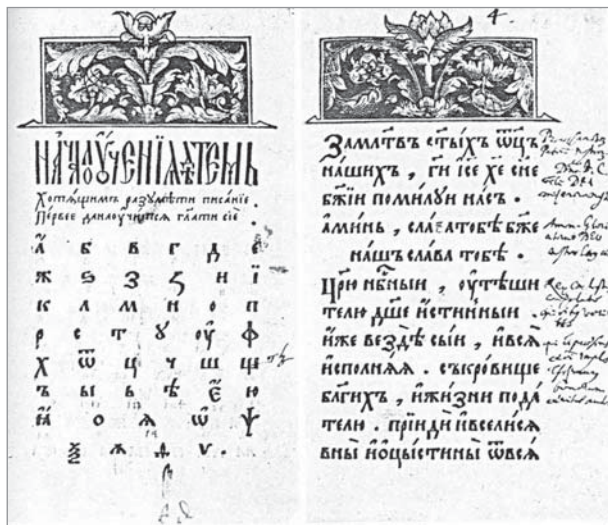 НАЧАЛО ОУЧЕНІЯ ДѢТЕМЪ
Хотящимъ разумѣти писаніе .
Первее
а б в г д є
ж ѕ з ꙁ и ї
к л м н о п
р с т у оу ф
х ѿ ц ч ш щ
ъ ы ь ѣ є ю
ꙗ о ѧ ѡ ѱ
ѯ ѫ ѳ ѵ .
4.
За млтвъ стыхъ ѿцъ
нашихъ , ги ісе хе сне
бжіи помилуи насъ .
Аминь , слава тобѣ бже
нашъ слава тобѣ .
Црю нбныи , оутѣши
телю дше истинныи .
иже вездѣ сыи , ився
исполняя . съкровище
блгихъ , ижизни пода
телю . пріиди ивселися
вны иоцыстины ѿвсѧ